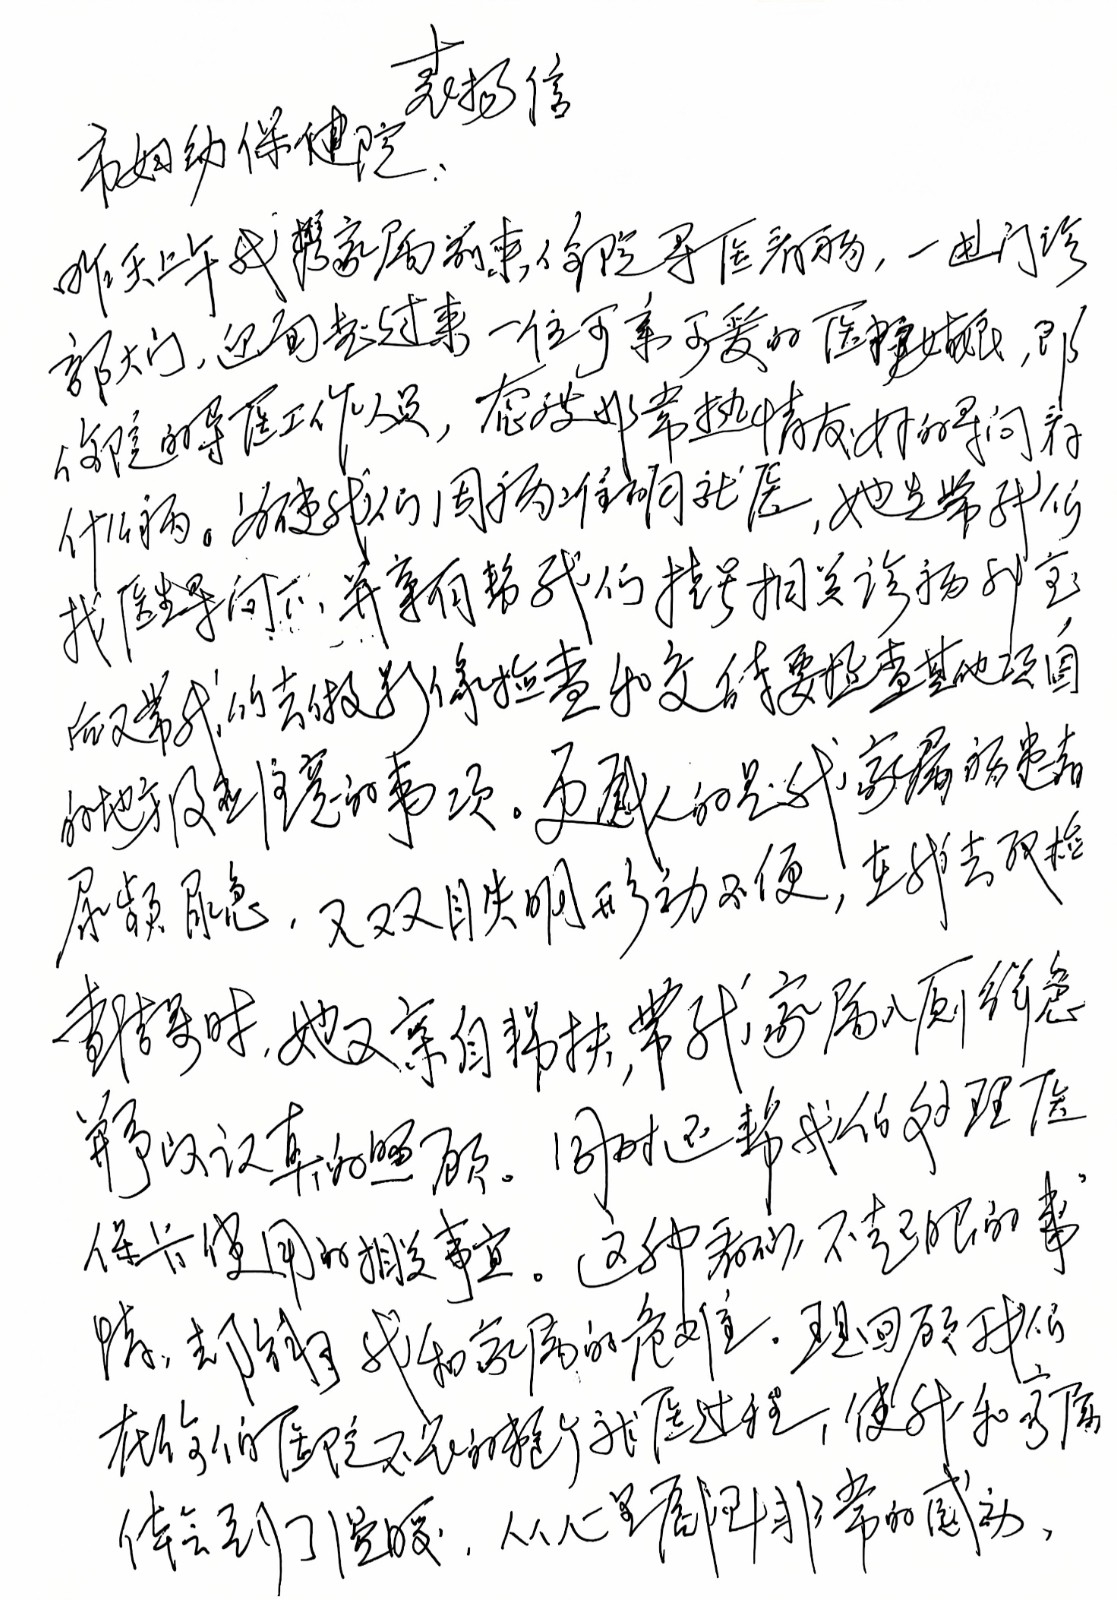 表扬信
市妇幼保健院：
昨天上午我携家属前来你院寻医看病，一进门诊
部大门，迎面走过来一位可亲可爱的医护姑娘，即
你院的导医工作人员，态度非常热情友好的寻问看
什么病。为使我们因病准确就医，她先带我们
找医生寻问下，并亲自帮我们挂号相关诊病科室，
后又带我们去做影像检查和交待要检查其他项目
的地方及注意的事项。更感人的是我家属病患者
尿频尿急，又双目失明形动不便，在我去取检
查结果时，她又亲自搀扶，带我家属入厕解急
并予以认真的照顾。同时还帮我们处理医
保卡使用的相关事宜。这种看似不起眼的事
情，却解了我和家属的危难。现回顾我们
在你们医院不长的整个就医过程，使我和家属
体会到了温暖，从心里面非常的感动，